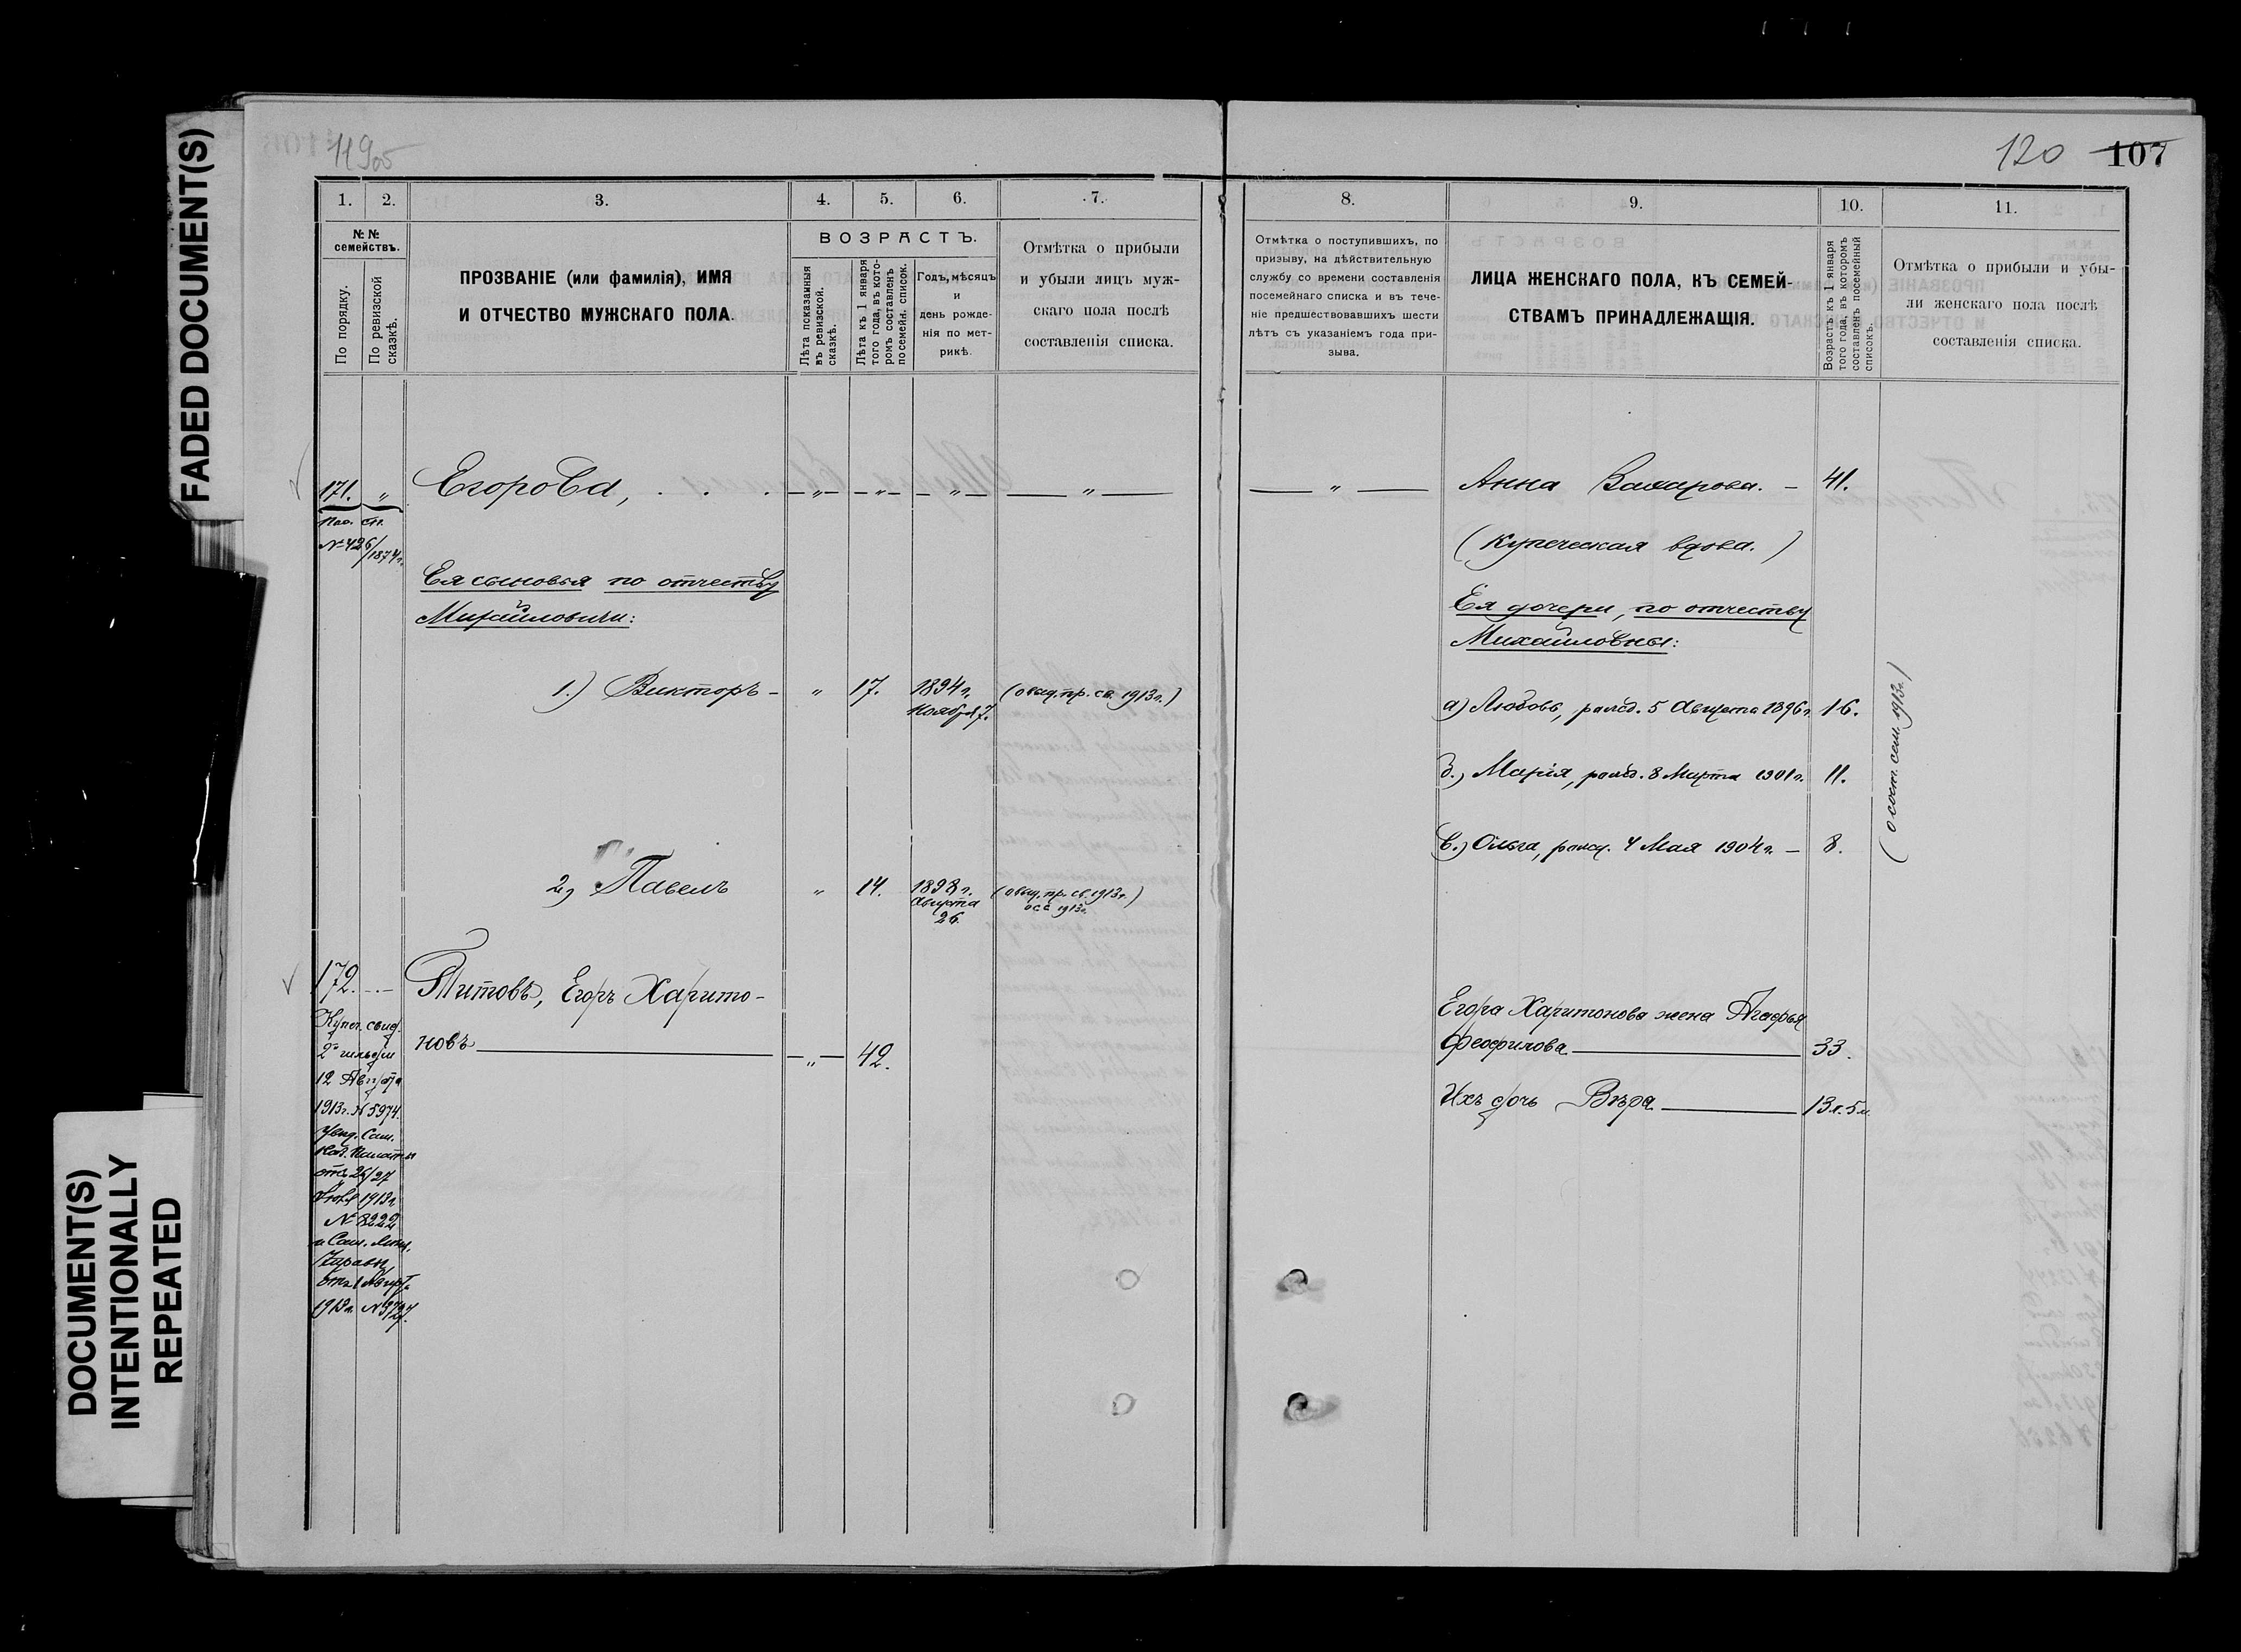 FADED DOCUMENT(S)
DOCUMENT(S)
INTENTIONALLY
REPEATED
120 107
1. 2. 3. 4. 5. 6. 7.
№№
семействъ.
По порядку.
По ревизской
сказкѣ.
ПРОЗВАНІЕ (или фамилія), ИМЯ
И ОТЧЕСТВО МУЖСКАГО ПОЛА.
ВОЗРАСТЪ.
Лѣта показанныя
въ ревизской.
сказкѣ.
Лѣта къ 1 января
того года, въ кото-
ромъ составленъ
посемейн. список.
Годъ, мѣсяцъ
и
день рожде-
нія по мет-
рикѣ.
Отмѣтка о прибыли
и убыли лицъ муж-
скаго пола послѣ
составленія списка.
171. „ Егорова, . . . „ „ „ „
№ 426/1874 г.
Ея сыновья по отчеству
Михайловичи:
1.) Викторъ - „ 17. 1894 г.
Ноября 7.
(о выд. пр. св. 1913 г.)
2) Павелъ „ 14. 1898 г.
Августа
26.
(о выд. пр. св. 1913 г.)
1913 г.
172. Титовъ, Егоръ Харито-
новъ „ 42.
Купеч. свид.
2й гильдіи
12 Августа
1913 г. № 5974.
Увед. Сам.
Каз. Палаты
отъ 26/27
1913 г.
№ 8222
и Сам.
Управы
отъ 1 Август.
1913 г. №
8. 9. 10. 11.
Отмѣтка о поступившихъ, по
призыву, на дѣйствительную
службу со времени составленія
посемейнаго списка и въ тече-
ніе предшествовавшихъ шести
лѣтъ съ указаніемъ года при-
зыва.
ЛИЦА ЖЕНСКАГО ПОЛА, КЪ СЕМЕЙ-
СТВАМЪ ПРИНАДЛЕЖАЩІЯ.
Возрастъ къ 1 января
того года, въ которомъ
составленъ посемейный
списокъ.
Отмѣтка о прибыли и убы-
ли женскаго пола послѣ
составленія списка.
„ Анна Захарова. - 41.
(купеческая вдова.)
Ея дочери, по отчеству
Михайловны:
а) Любовь, рожд. 5 Августа 1896 г. 16.
б.) Марія, рожд. 8 Марта 1901 г. 11.
в.) Ольга, рожд. 4 Мая 1904 г. - 8.
(о сост. сем. 1913 г.)
Егора Харитонова жена Агафья
Феофилова 33.
Ихъ дочь Вѣра 13 л. 5 м.